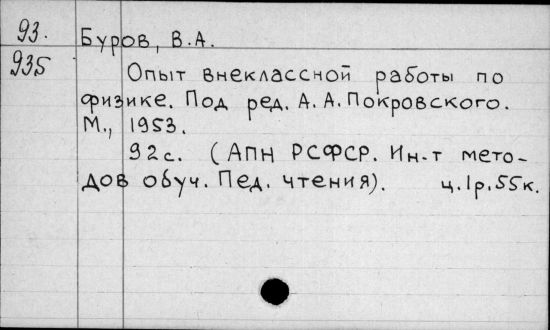 93.
935
Буров, В.А.
Опыт внеклассной работы по
физике. Под ред. А.А.Покровского.
М., 1953.
92с. (АПН РСФСР. Ин-т мето-
дов обуч. Пед. чтения). ц.1р.55к.